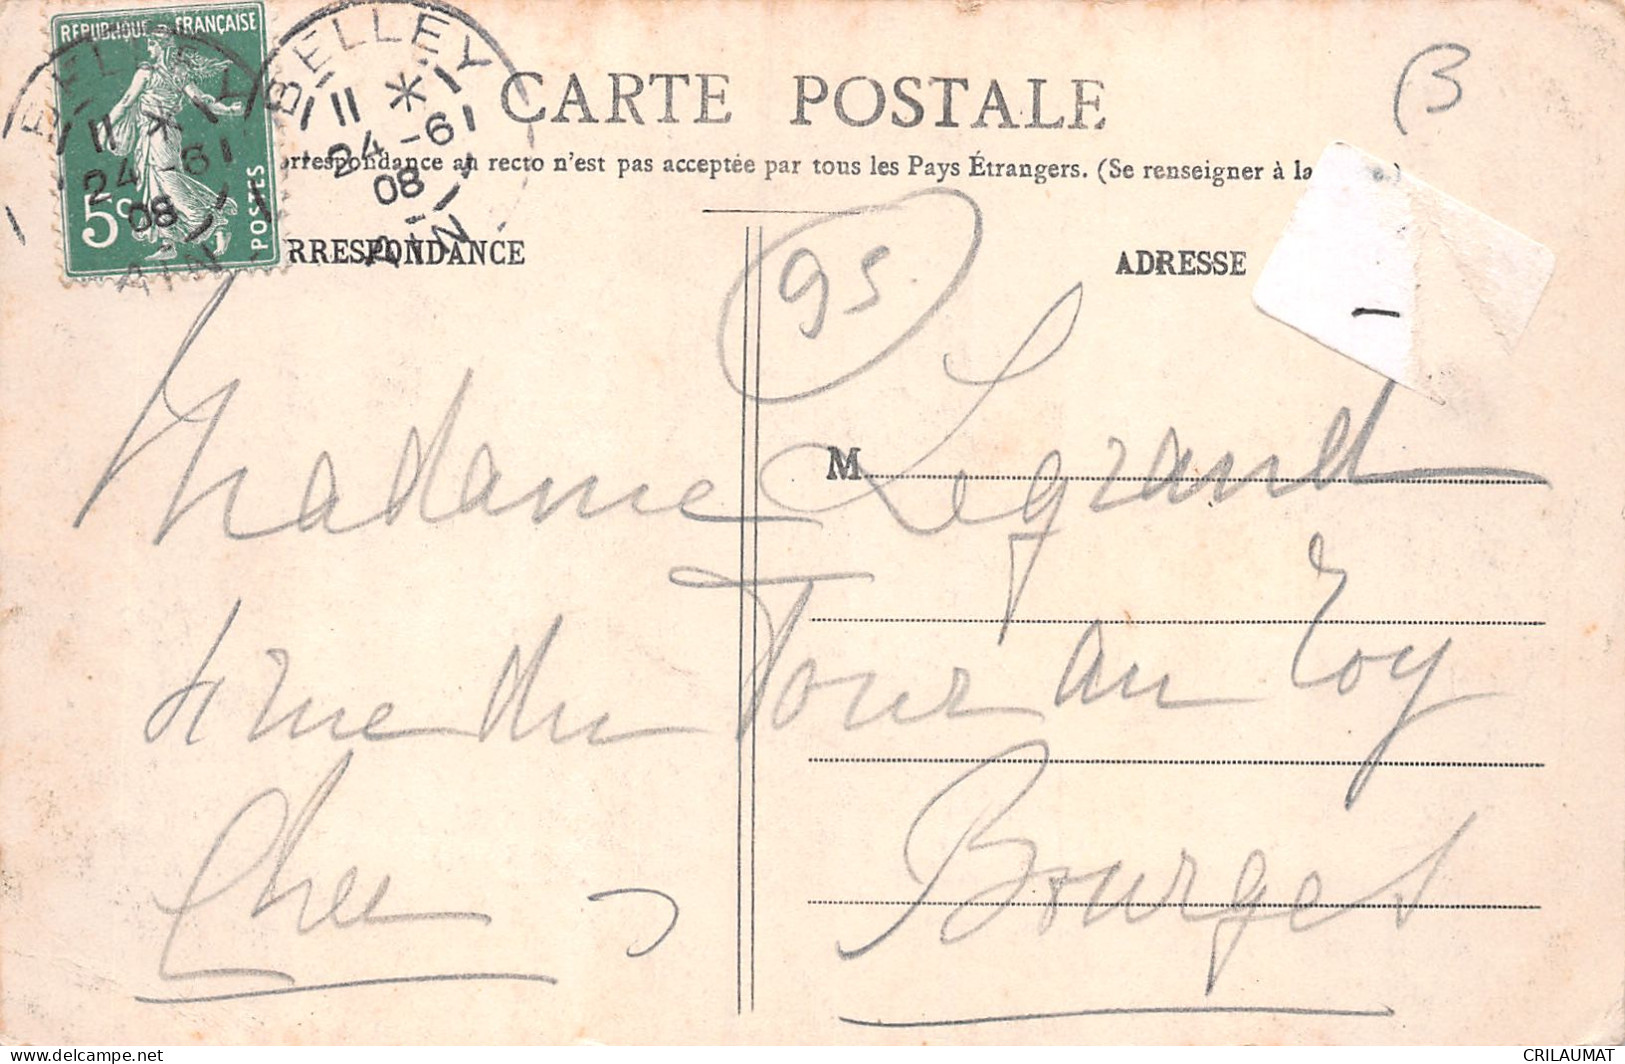 REPUBLIQUE FRANÇAISE
5c
POSTES
BELLEY
11 *
24 -6
08
AIN
BELLEY
11 *
24 -6
08
AIN
CARTE POSTALE
B
orrespondance au recto n'est pas acceptée par tous les Pays Étrangers. (Se renseigner à la
RRESPONDANCE
ADRESSE
95
Madame Legrand
M
4 rue du Tour au Roy
Cher
Bourges
delcampe.net
CRILAUMAT